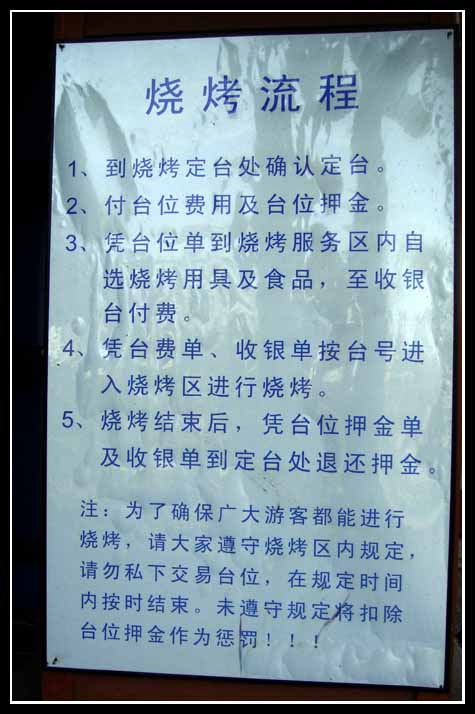 烧烤流程
1、到烧烤定台处确认定台。
2、付台位费用及台位押金。
3、凭台位单到烧烤服务区内自
选烧烤用具及食品，至收银
台付费。
4、凭台费单、收银单按台号进
入烧烤区进行烧烤。
5、烧烤结束后，凭台位押金单
及收银单到定台处退还押金。
注：为了确保广大游客都能进行
烧烤，请大家遵守烧烤区内规定，
请勿私下交易台位，在规定时间
内按时结束。未遵守规定将扣除
台位押金作为惩罚！！！